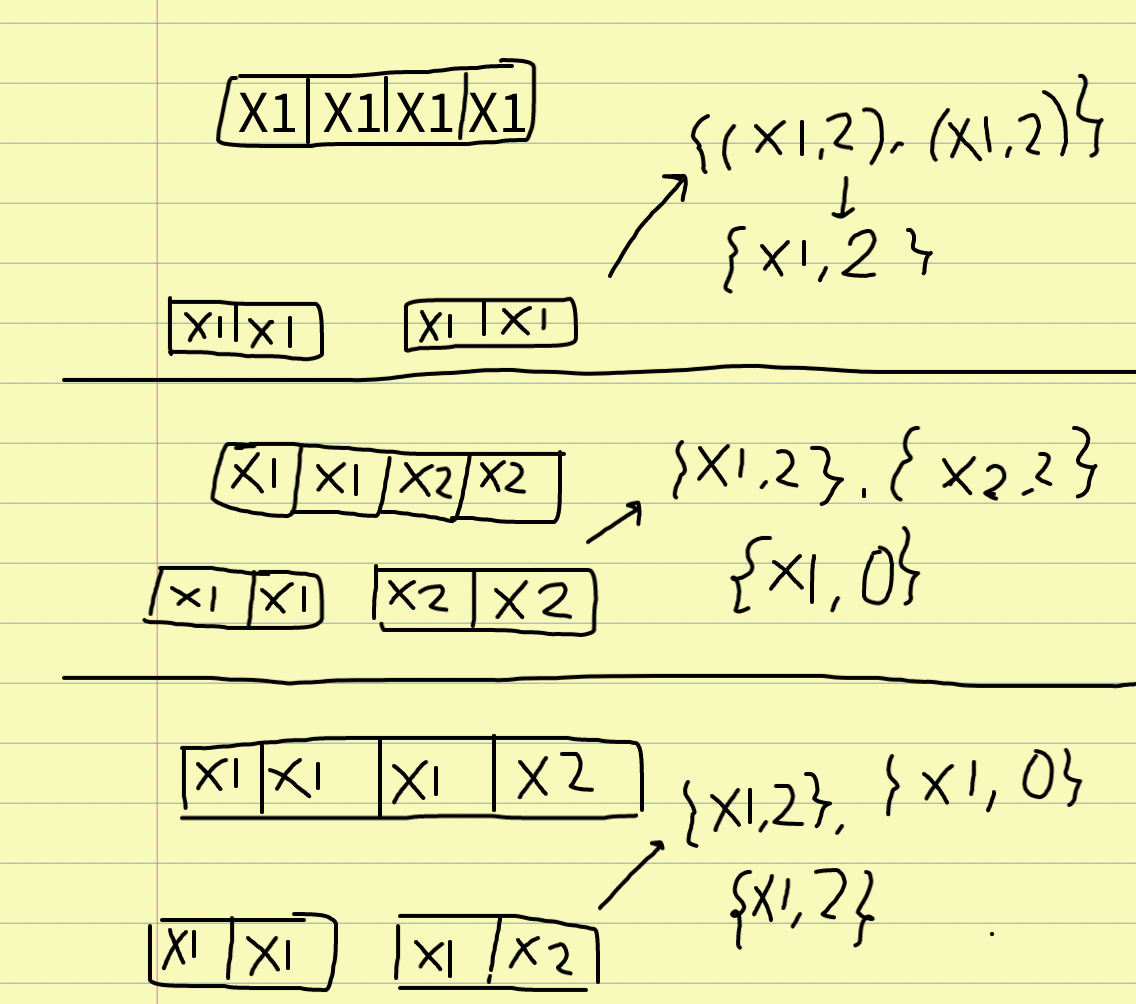 X1 X1 X1 X1
{(X1,2), (X1,2)}
{X1,2}
X1 X1 X1 X1
X1 X1 X2 X2
{X1,2}, {X2,2}
{X1,0}
X1 X1 X2 X2
X1 X1 X1 X2
{X1,2}, {X1,0}
{X1,2}
X1 X1 X1 X2